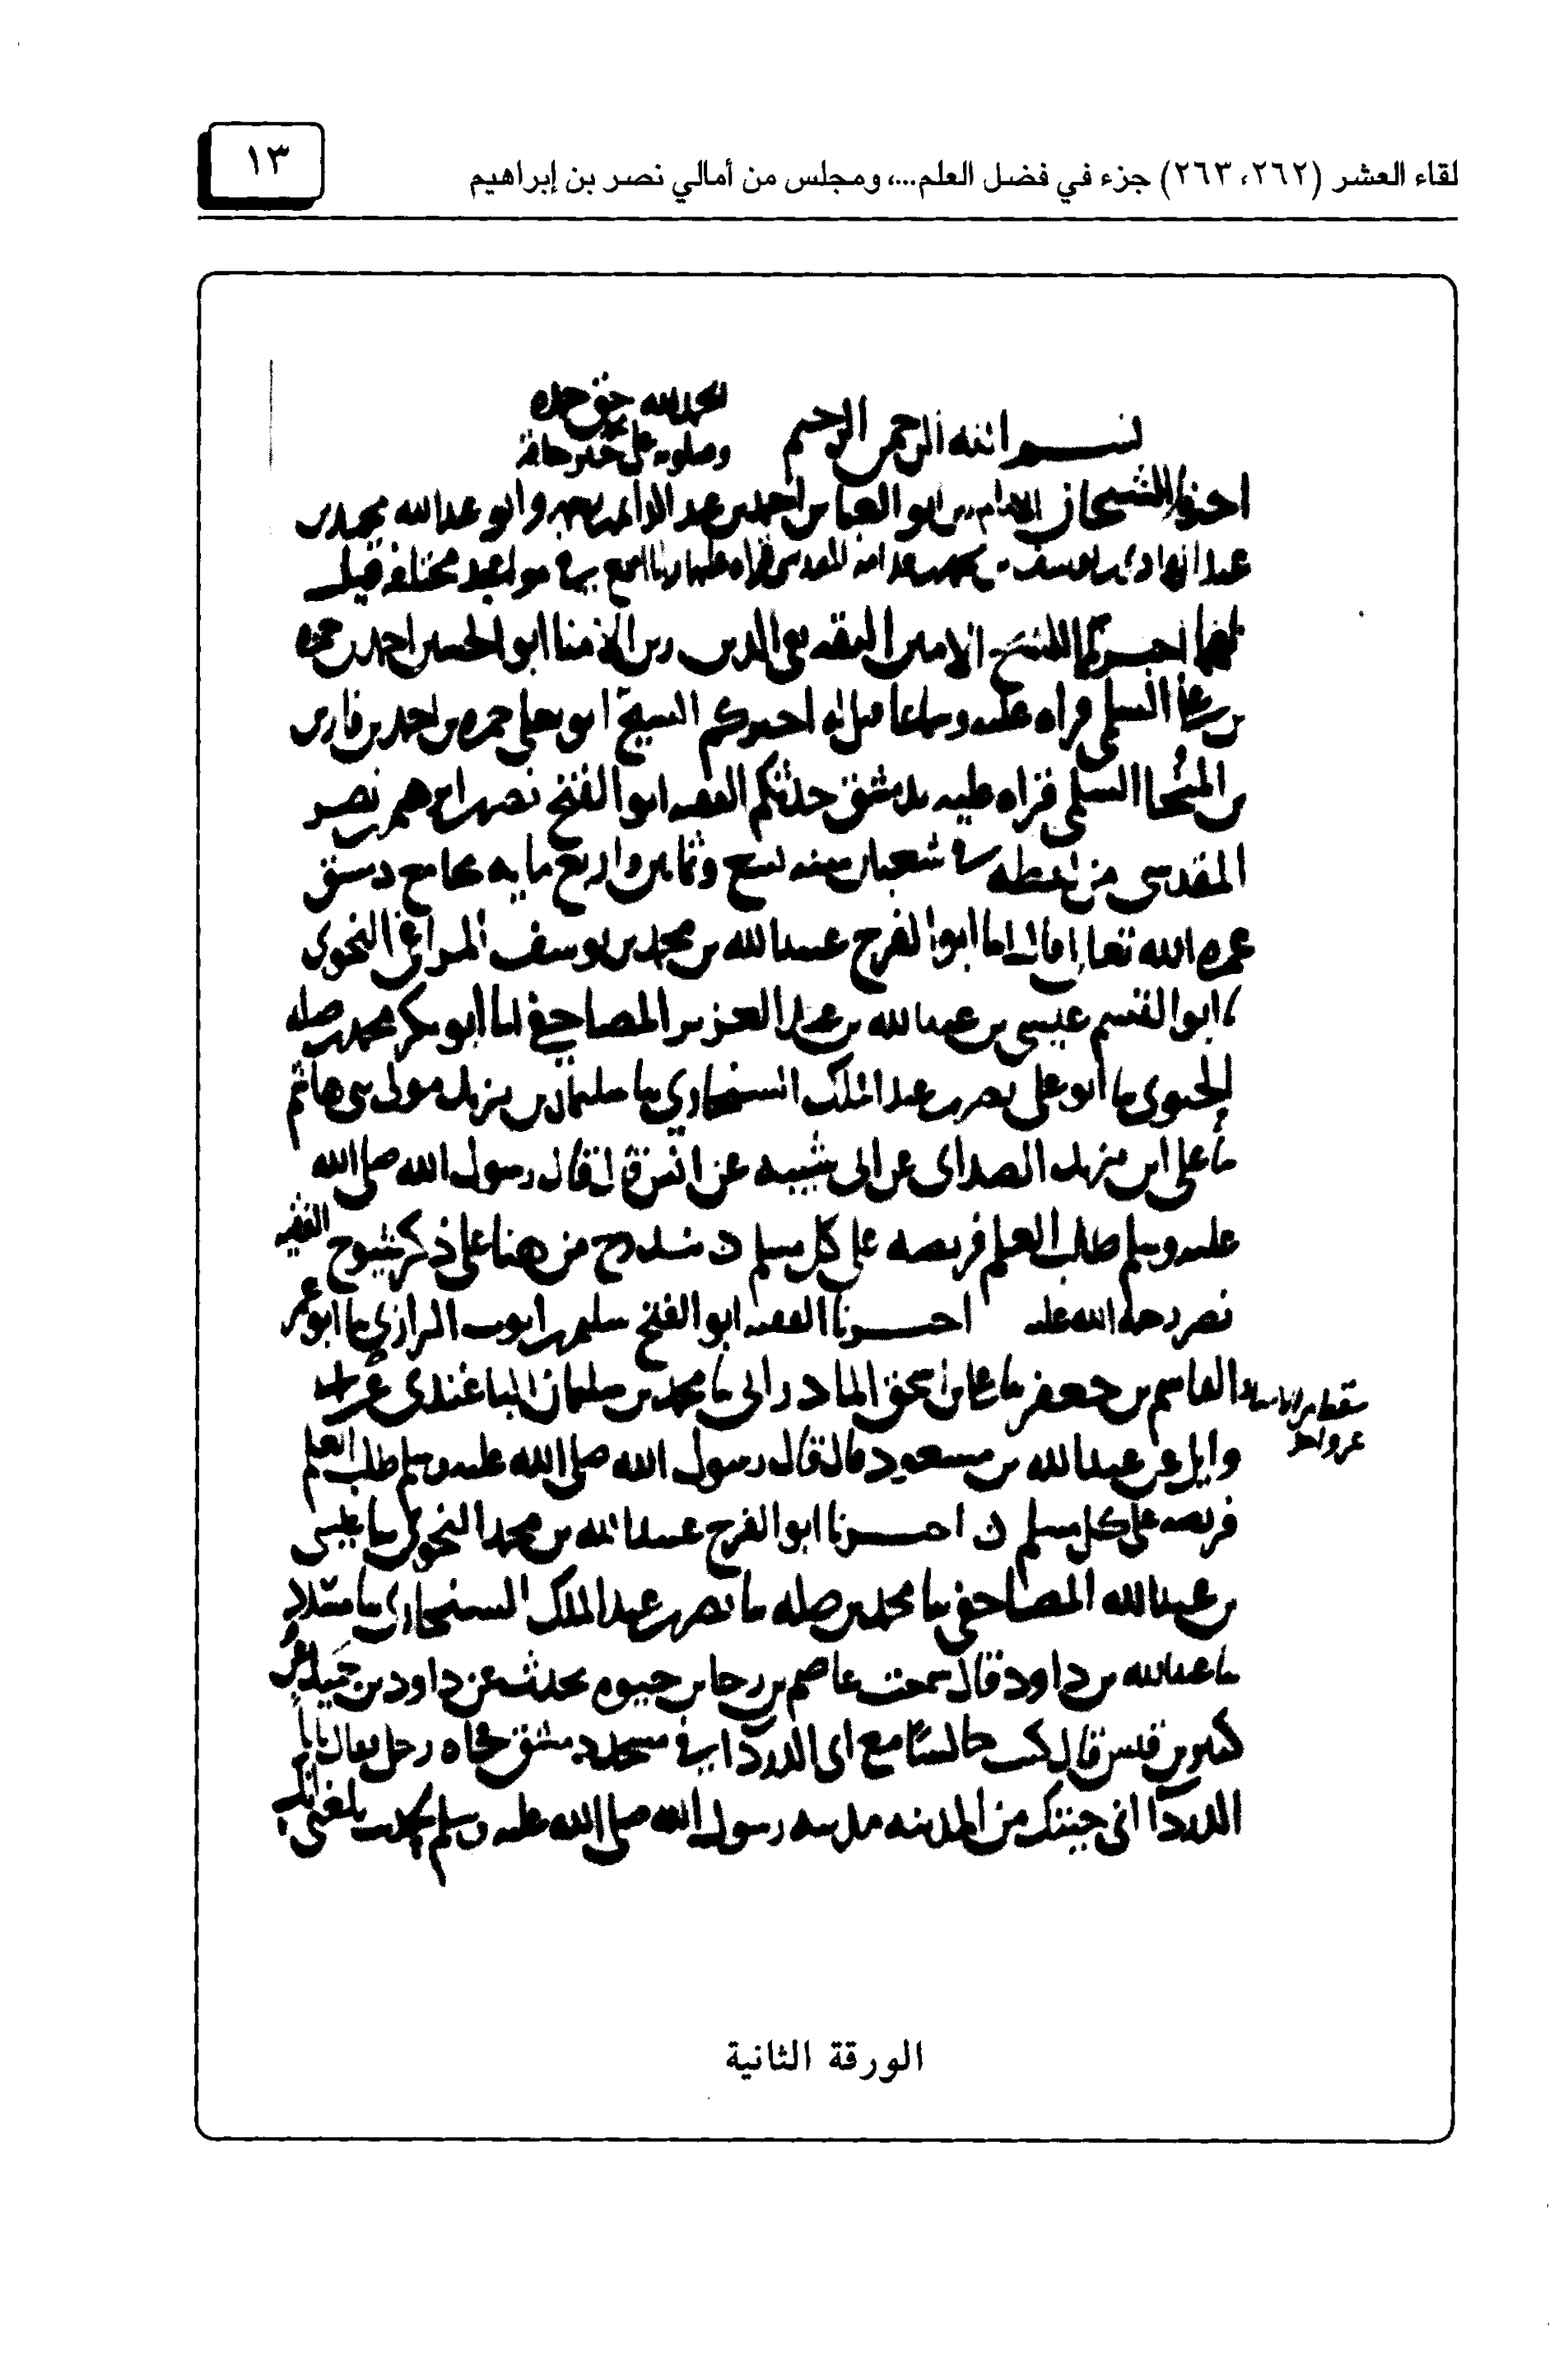 لقاء العشر (٢٦٢، ٢٦٣) جزء في فضل العلم...، ومجلس من أمالي نصر بن إبراهيم
١٣
الحمد لله حق حمده
بسم الله الرحمن الرحيم
وصلوته على خير خلقه
احبرنا الشيخان ابو العباس احمد بن عبد الدائم وابو عبد الله محمد بن
عبد الهادي بن يوسف بن المقدسي قراه عليهما وانا اسمع في مواعيد مختلفه قيل
لهما احبركما الشيخ الامين الثقه الدين زين الامنا ابو الحسين احمد بن حمزه
بن علي السلمي قراه عليه وسماعا قيل له احبركم الشيخ ابو يعلى حمزه بن احمد بن فارس
بن المنجا السلمي قراه عليه بدمشق حدثكم الفقيه ابو الفتح نصر بن ابرهيم بن نصر
المقدسي من لفظه في شعبان سنه تسع وثمانين واربع مايه بجامع دمشق
عمره الله تعالى قال انا ابو الفرج عبيد الله بن محمد بن يوسف المراغي النحوي
ابو القسم عيسى بن عبيد الله بن عبد العزيز المصاحفي انا ابو بكر محمد بن صله
الحيوي نا ابو علي نصر بن عبد الملك السنجاري نا سليمان بن يزيد مولى بني هاشم
نا علي بن يزيد الصداي عن ابي شيبه عن انس قال قال رسول الله صلى الله
عليه وسلم طلب العلم فريضه على كل مسلم من هنا على ذكر شيوخ الفقيه
نصر رحمة الله عليه احبرنا الفقيه ابو الفتح سليم بن ايوب الرازي نا ابو عمر
القاسم بن جعفر نا علي بن اسحق المادرائي نا محمد بن سليمان الباغندي عن
سقط من
عن واحد
وايل عن عبد الله بن مسعود قال قال رسول الله صلى الله عليه وسلم طلب العلم
فريضه على كل مسلم احبرنا ابو الفرج عبيد الله بن محمد النحوي نا عيسى
بن عبيد الله المصاحفي نا محمد بن صله نا نصر بن عبد الملك السنجاري نا مسدد
نا عبد الله بن داود قال سمعت عاصم بن رجا بن حيوه يحدث عن داود بن جميل عن
كثير بن قيس قال كنت جالسا مع ابي الدردا في مسجد دمشق فجاه رجل فقال يا ابا
الدردا اني جيتك من المدينه مدينه رسول الله صلى الله عليه وسلم لحديث بلغني انك
الورقة الثانية